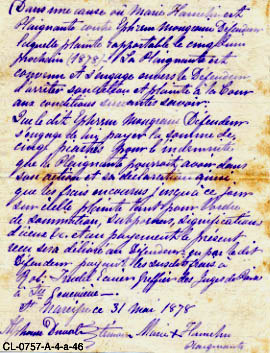 (Dans une cause où Marie Hamelin est
Plaignante contre Ephrem Mongeau Defendeur
laquelle plainte rapportable le cinq Juin
prochain (1878) La Plaignante est
convenue et s'engage envers le Defendeur
d'arrêter son action et plainte à la Cour
aux conditions suivantes savoir.
Que le dit Ephrem Mongeau Defendeur
s'engage de lui payer la somme de
cinq piastres pour l'indemnité
que la Plaignante pourrait avoir dans
son action et sa déclaration ainsi
que les frais encourus jusqu'à ce jour
sur telle plainte tant pour Ordre
de sommation, Subpoenas, significations
d'iceux et étant payement le présent
reçu sera délivré au Defendeur ou par le dit
Defendeur payer les susdits frais à
Trudel Ecuier Greffier des Juges de Paix
à Ste Geneviève
St Narcisse 31 Mai 1878
Marie X Hamelin
Plaignante
CL-0757-A-4-a-46